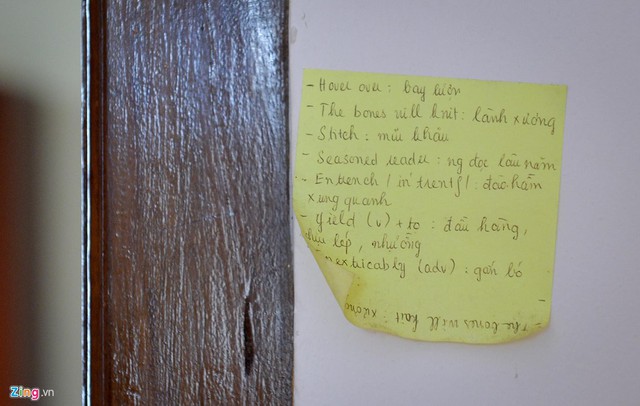 - Hover over : bay liện
- The bones will knit : lành xương
- Stitch : mũi khâu
- Seasoned reader : ng đọc lâu năm
- Entrench / in'trentʃ / : đào hầm
xung quanh
- yield (v) + to : đầu hàng,
chịu lép, nhường
nextricably (adv) : gắn bó
- The bones will knit :
xương
Zing.vn